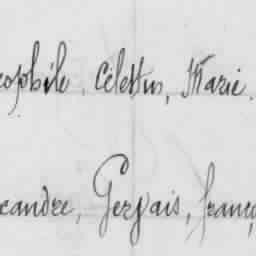 eophile, Célestin, Marie.
xandre, Gervais, franç